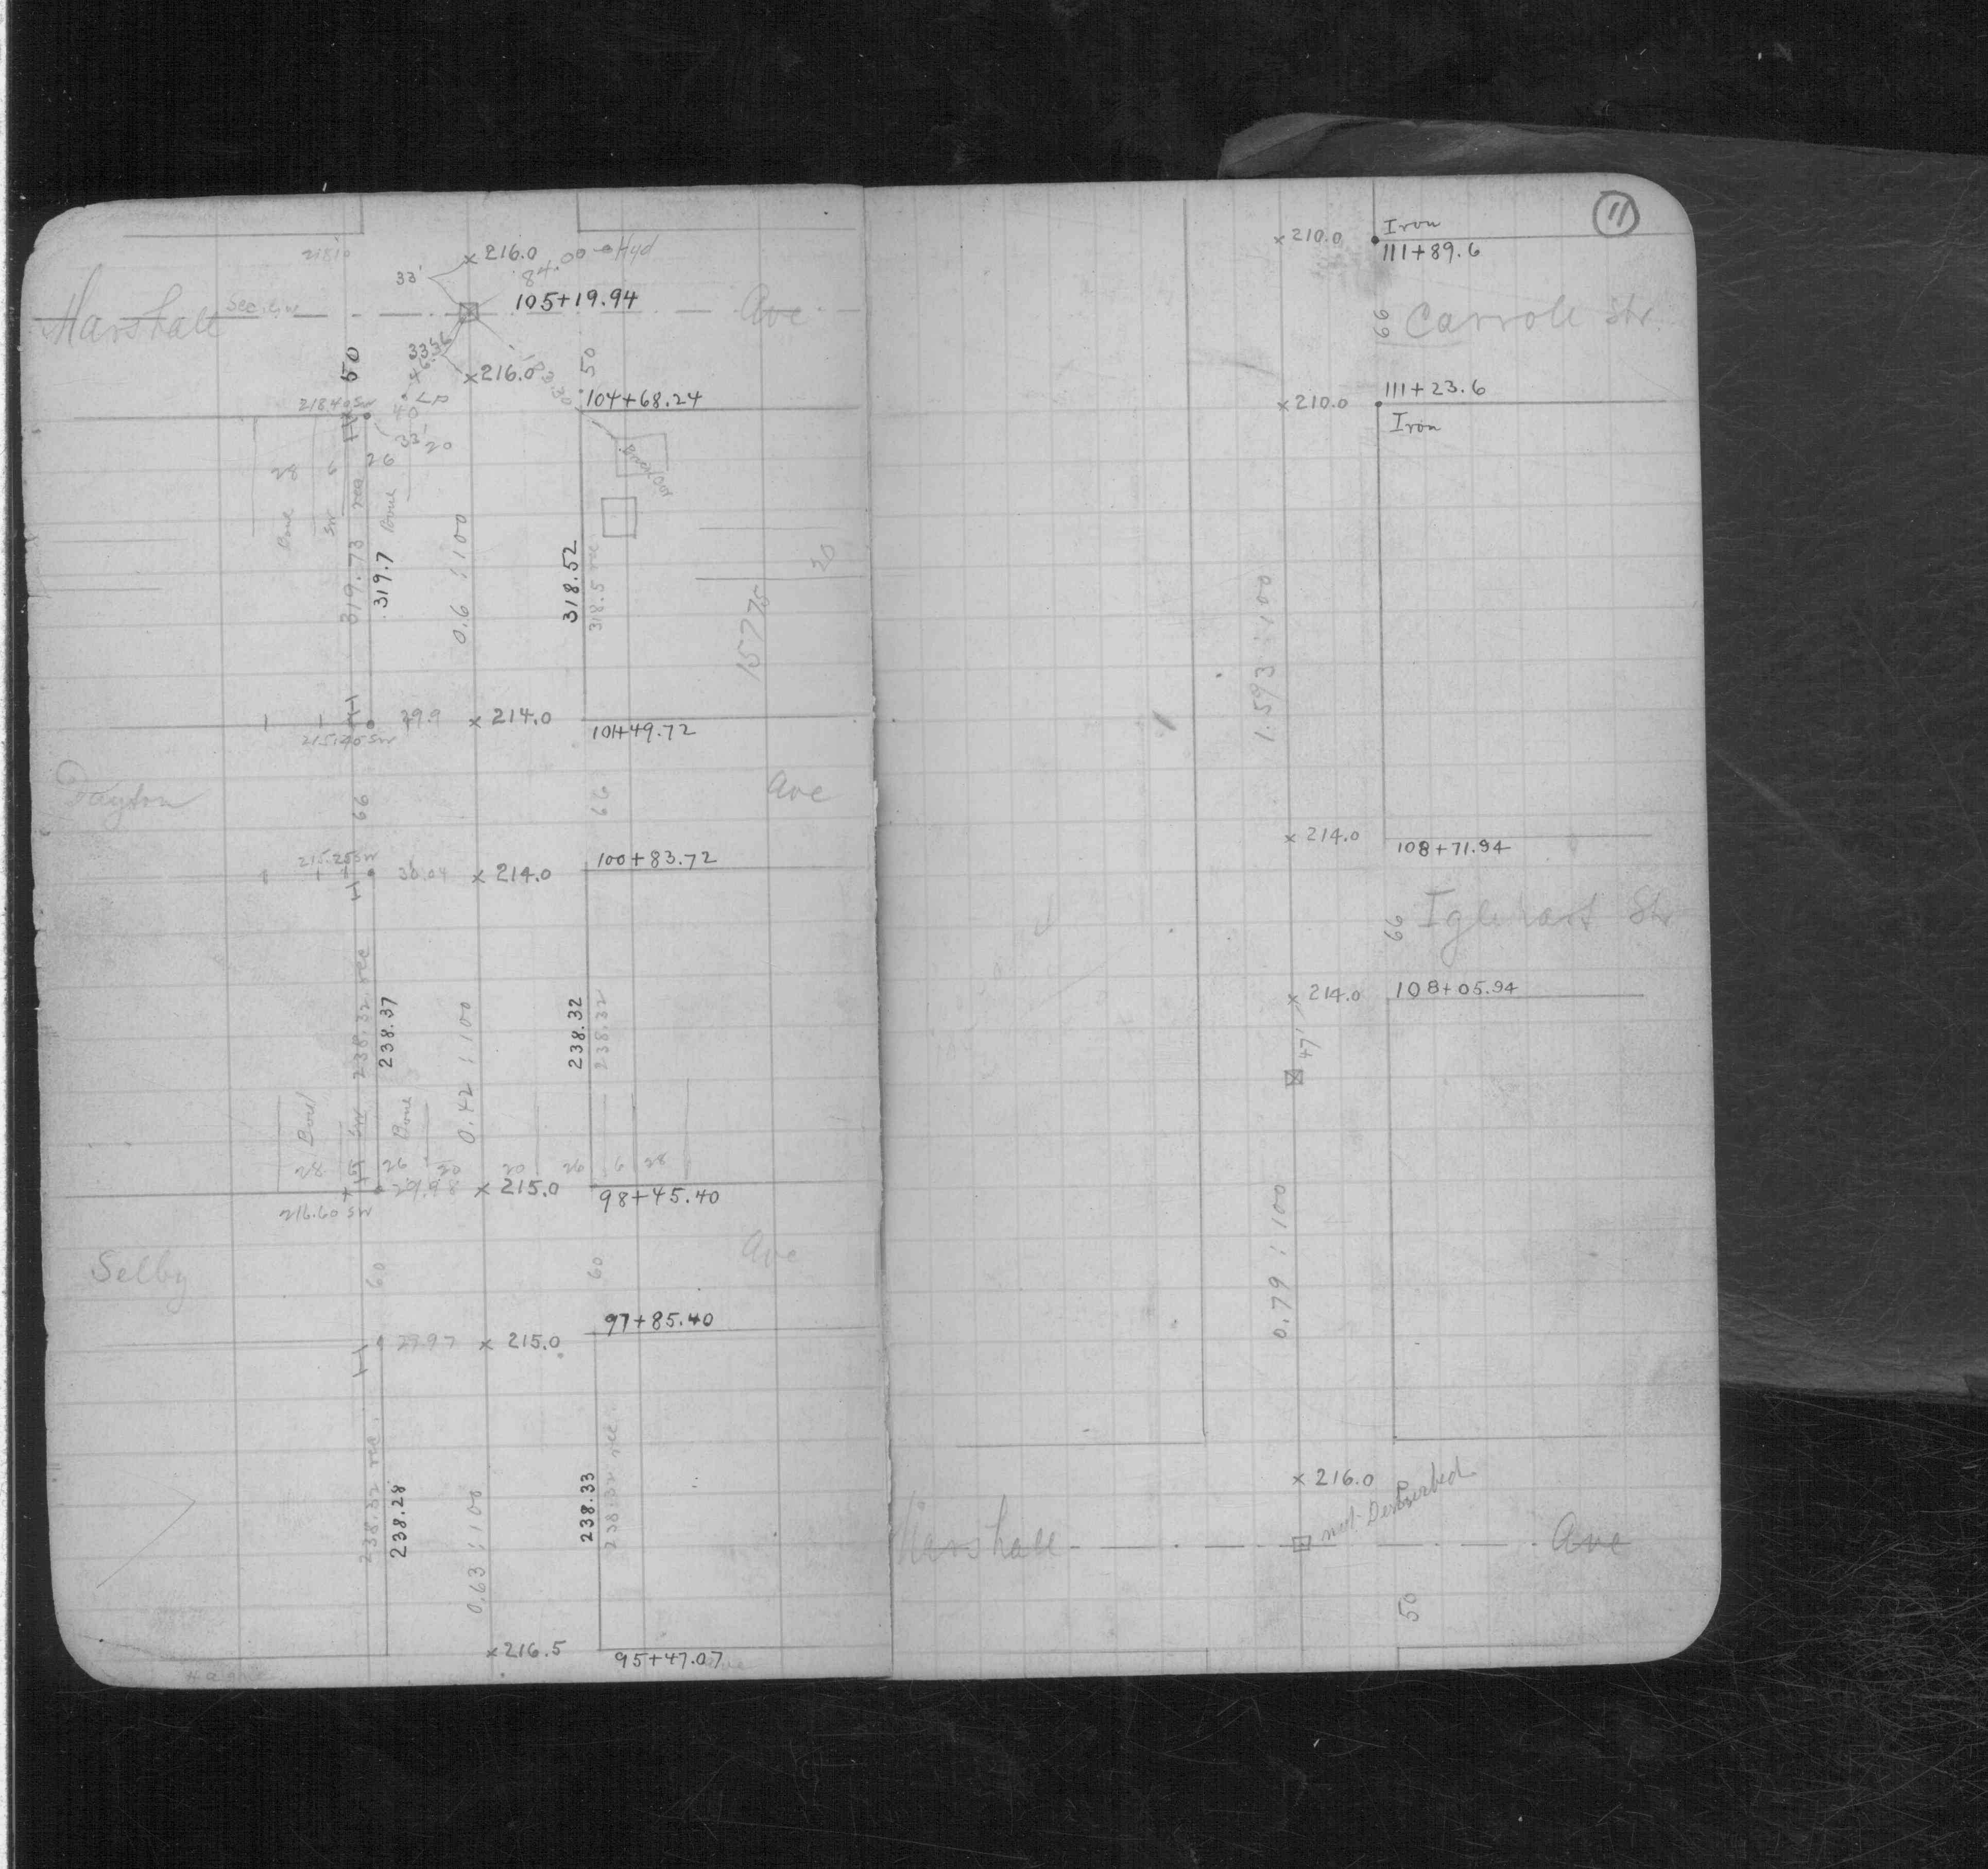 21810
33'
× 216.0
48.00 Hyd
105+19.94
Marshall Sec. Lin Ave
50
335
× 216.0
50
LP
218.40 SW
40
104+68.24
33'
20
28
6
26
Boul
SW
Boul
319.73 rec
319.7
0.6 : 100
318.52
318.5 rec
15775
20
29.9
× 214.0
215.40 SW
101+49.72
Dayton Ave
66
66
215.25 SW
30.04
× 214.0
100+83.72
238.32 rec
238.37
0.42 : 100
238.32
238.32
Boul
SW
Boul
28
26
20
20
26
6
28
29.98
× 215.0
216.60 SW
98+45.40
Selby Ave
60
60
97+85.40
29.97
× 215.0
238.32 rec.
238.28
0.63 : 100
238.33
238.32 rec
× 216.5
95+47.07
11
× 210.0
Iron
111+89.6
66
Carroll Str
111+23.6
× 210.0
Iron
1.593 : 100
× 214.0
108+71.94
66
Iglehart Str
× 214.0
108+05.94
47'
0.79 : 100
× 216.0
not Desturbed
Marshall Ave
50